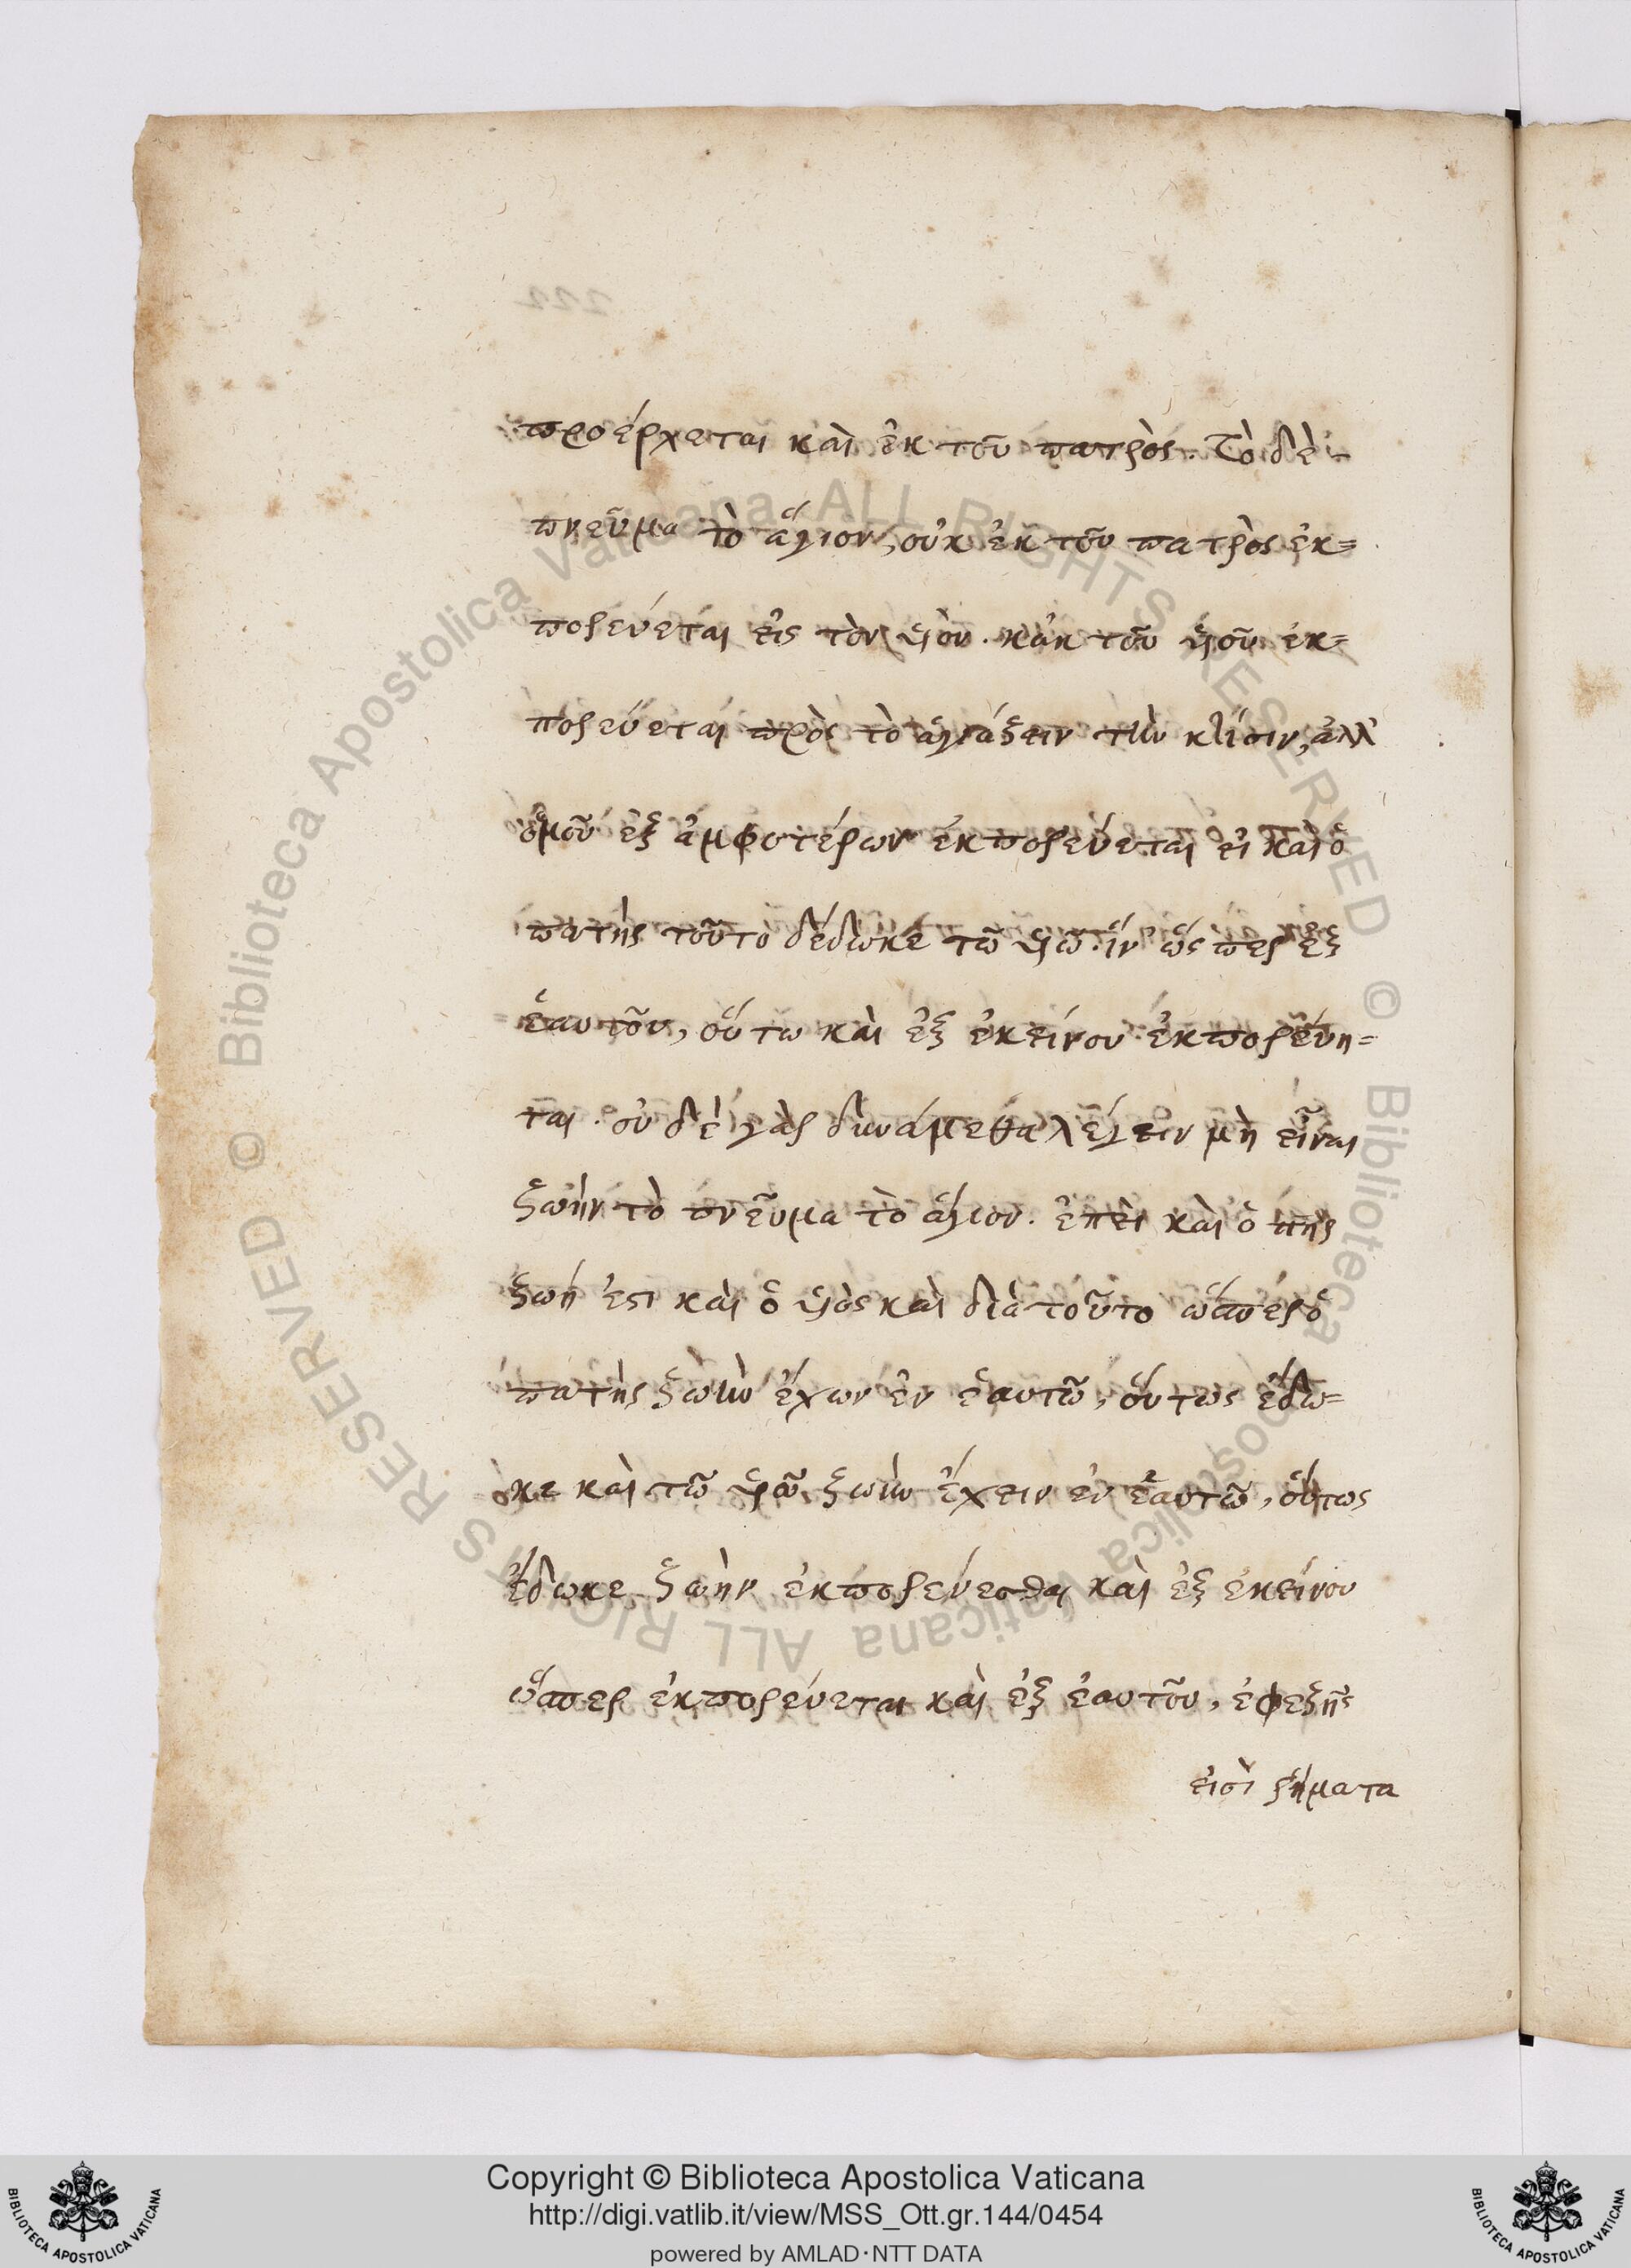 προέρχεται καὶ ἐκ τοῦ πατρὸς. Τὸ δὲ
πνεῦμα τὸ ἅγιον, οὐκ ἐκ τοῦ πατρὸς ἐκ=
πορεύεται εἰς τὸν ὑιὸν. κἀκ τοῦ ὑιοῦ ἐκ=
πορεύεται πρὸς τὸ ἁγιάζειν τὴν κτίσιν, ἀλλ'
ὁμοῦ ἐξ ἀμφοτέρων ἐκπορεύεται εἰ καὶ ὁ
πατὴρ τοῦτο δέδωκε τῶ ὑιῶ. ἵν' ὥς περ ἐξ
ἑαυτοῦ, οὕτω καὶ ἐξ ἐκείνου ἐκπορεύη=
ται. οὐ δὲ γὰρ δυνάμεθα λέγειν μὴ εἶναι
ζωὴν τὸ πνεῦμα τὸ ἅγιον. ἐπεὶ καὶ ὁ πηρ
ζωή ἐστι καὶ ὁ ὑιὸς καὶ διὰ τοῦτο ὥσπερ ὁ
πατὴρ ζωὴν ἔχων ἐν ἑαυτῶ, οὕτως ἔδω=
κε καὶ τῶ ὑιῶ ζωὴν ἔχειν ἐν ἑαυτῶ, οὕτως
ἔδωκε ζωὴν ἐκπορεύεσθαι καὶ ἐξ ἐκείνου
ὥσπερ ἐκπορεύεται καὶ ἐξ ἑαυτοῦ, ἐφεξῆς
εἰσὶ ῥήματα
Biblioteca Apostolica Vaticana ALL RIGHTS RESERVED © Biblioteca Apostolica Vaticana ALL RIGHTS RESERVED ©
Copyright © Biblioteca Apostolica Vaticana
http://digi.vatlib.it/view/MSS_Ott.gr.144/0454
powered by AMLAD·NTT DATA
BIBLIOTECA APOSTOLICA VATICANA
BIBLIOTECA APOSTOLICA VATICANA